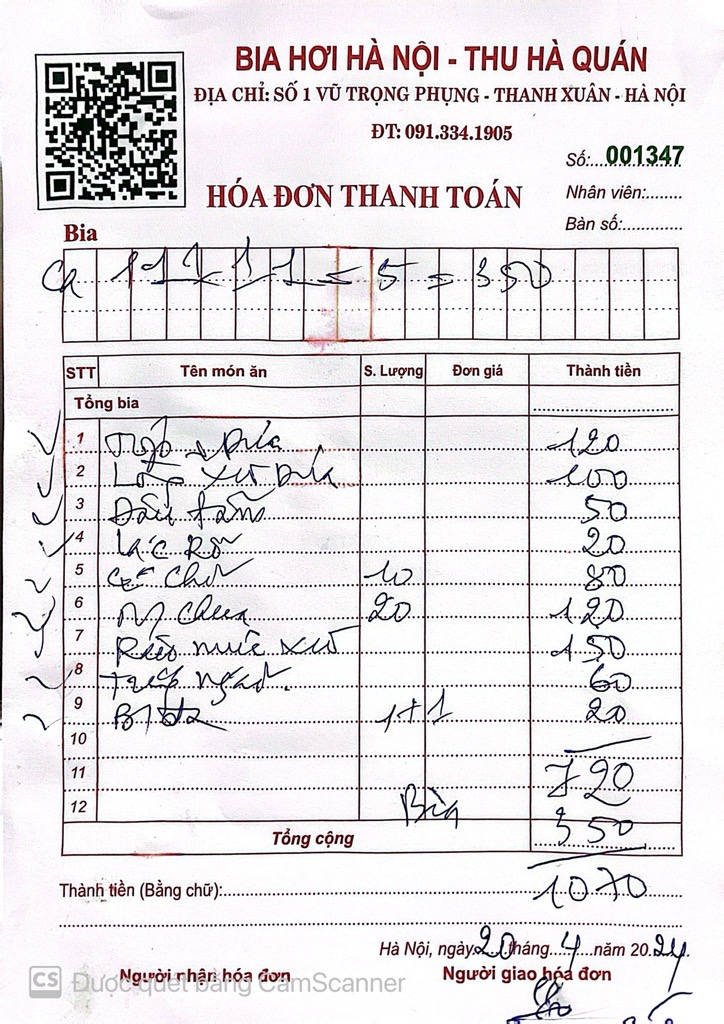 BIA HƠI HÀ NỘI - THU HÀ QUÁN
ĐỊA CHỈ: SỐ 1 VŨ TRỌNG PHỤNG - THANH XUÂN - HÀ NỘI
ĐT: 091.334.1905
Số:...001347
HÓA ĐƠN THANH TOÁN
Nhân viên:.......
Bàn số:............
Bia
1 1 1 1 1 = 5 = 350
STT Tên món ăn S. Lượng Đơn giá Thành tiền
Tổng bia
1 120
2 100
3 Đậu tẩm 50
4 Lạc Rô 20
5 10 80
6 chua 20 120
7 mực xù 150
8 60
9 1+1 20
10
11 720
12 Bia
Tổng cộng 350
Thành tiền (Bằng chữ): 1070
Hà Nội, ngày 20 tháng 4 năm 2024
Người nhận hóa đơn Người giao hóa đơn
CS Được quét bằng CamScanner